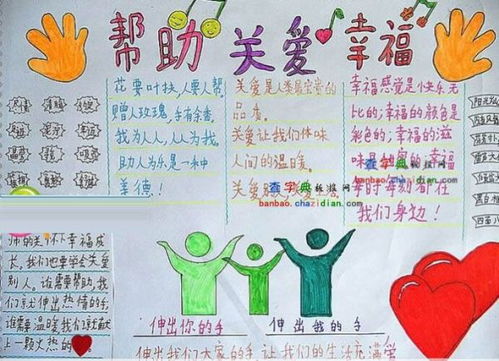 帮助 关爱 幸福
花要叶扶,人要人帮
赠人玫瑰,手有余香
我为人人,人人为我
助人为乐是一种
美德!
关爱是人类最宝贵的
品质。
关爱让我们体味
人间的温暖。
关爱
幸福感觉是快乐无
比的;幸福的颜色是
彩色的;幸福的滋
味是 幸福
时时刻刻都在
我们身边!
查字典板报网
banbao.chazidian.com
查字典板报网
banbao.chazidian.com
师的关怀下幸福成
长,我们也要学会关爱
别人。谁需要帮助,我
们就伸出热情的手;
谁需要温暖我们就献
上一颗火热的
伸出你的手 伸出我的手
伸出我们大家的手 让我们的生活充满爱